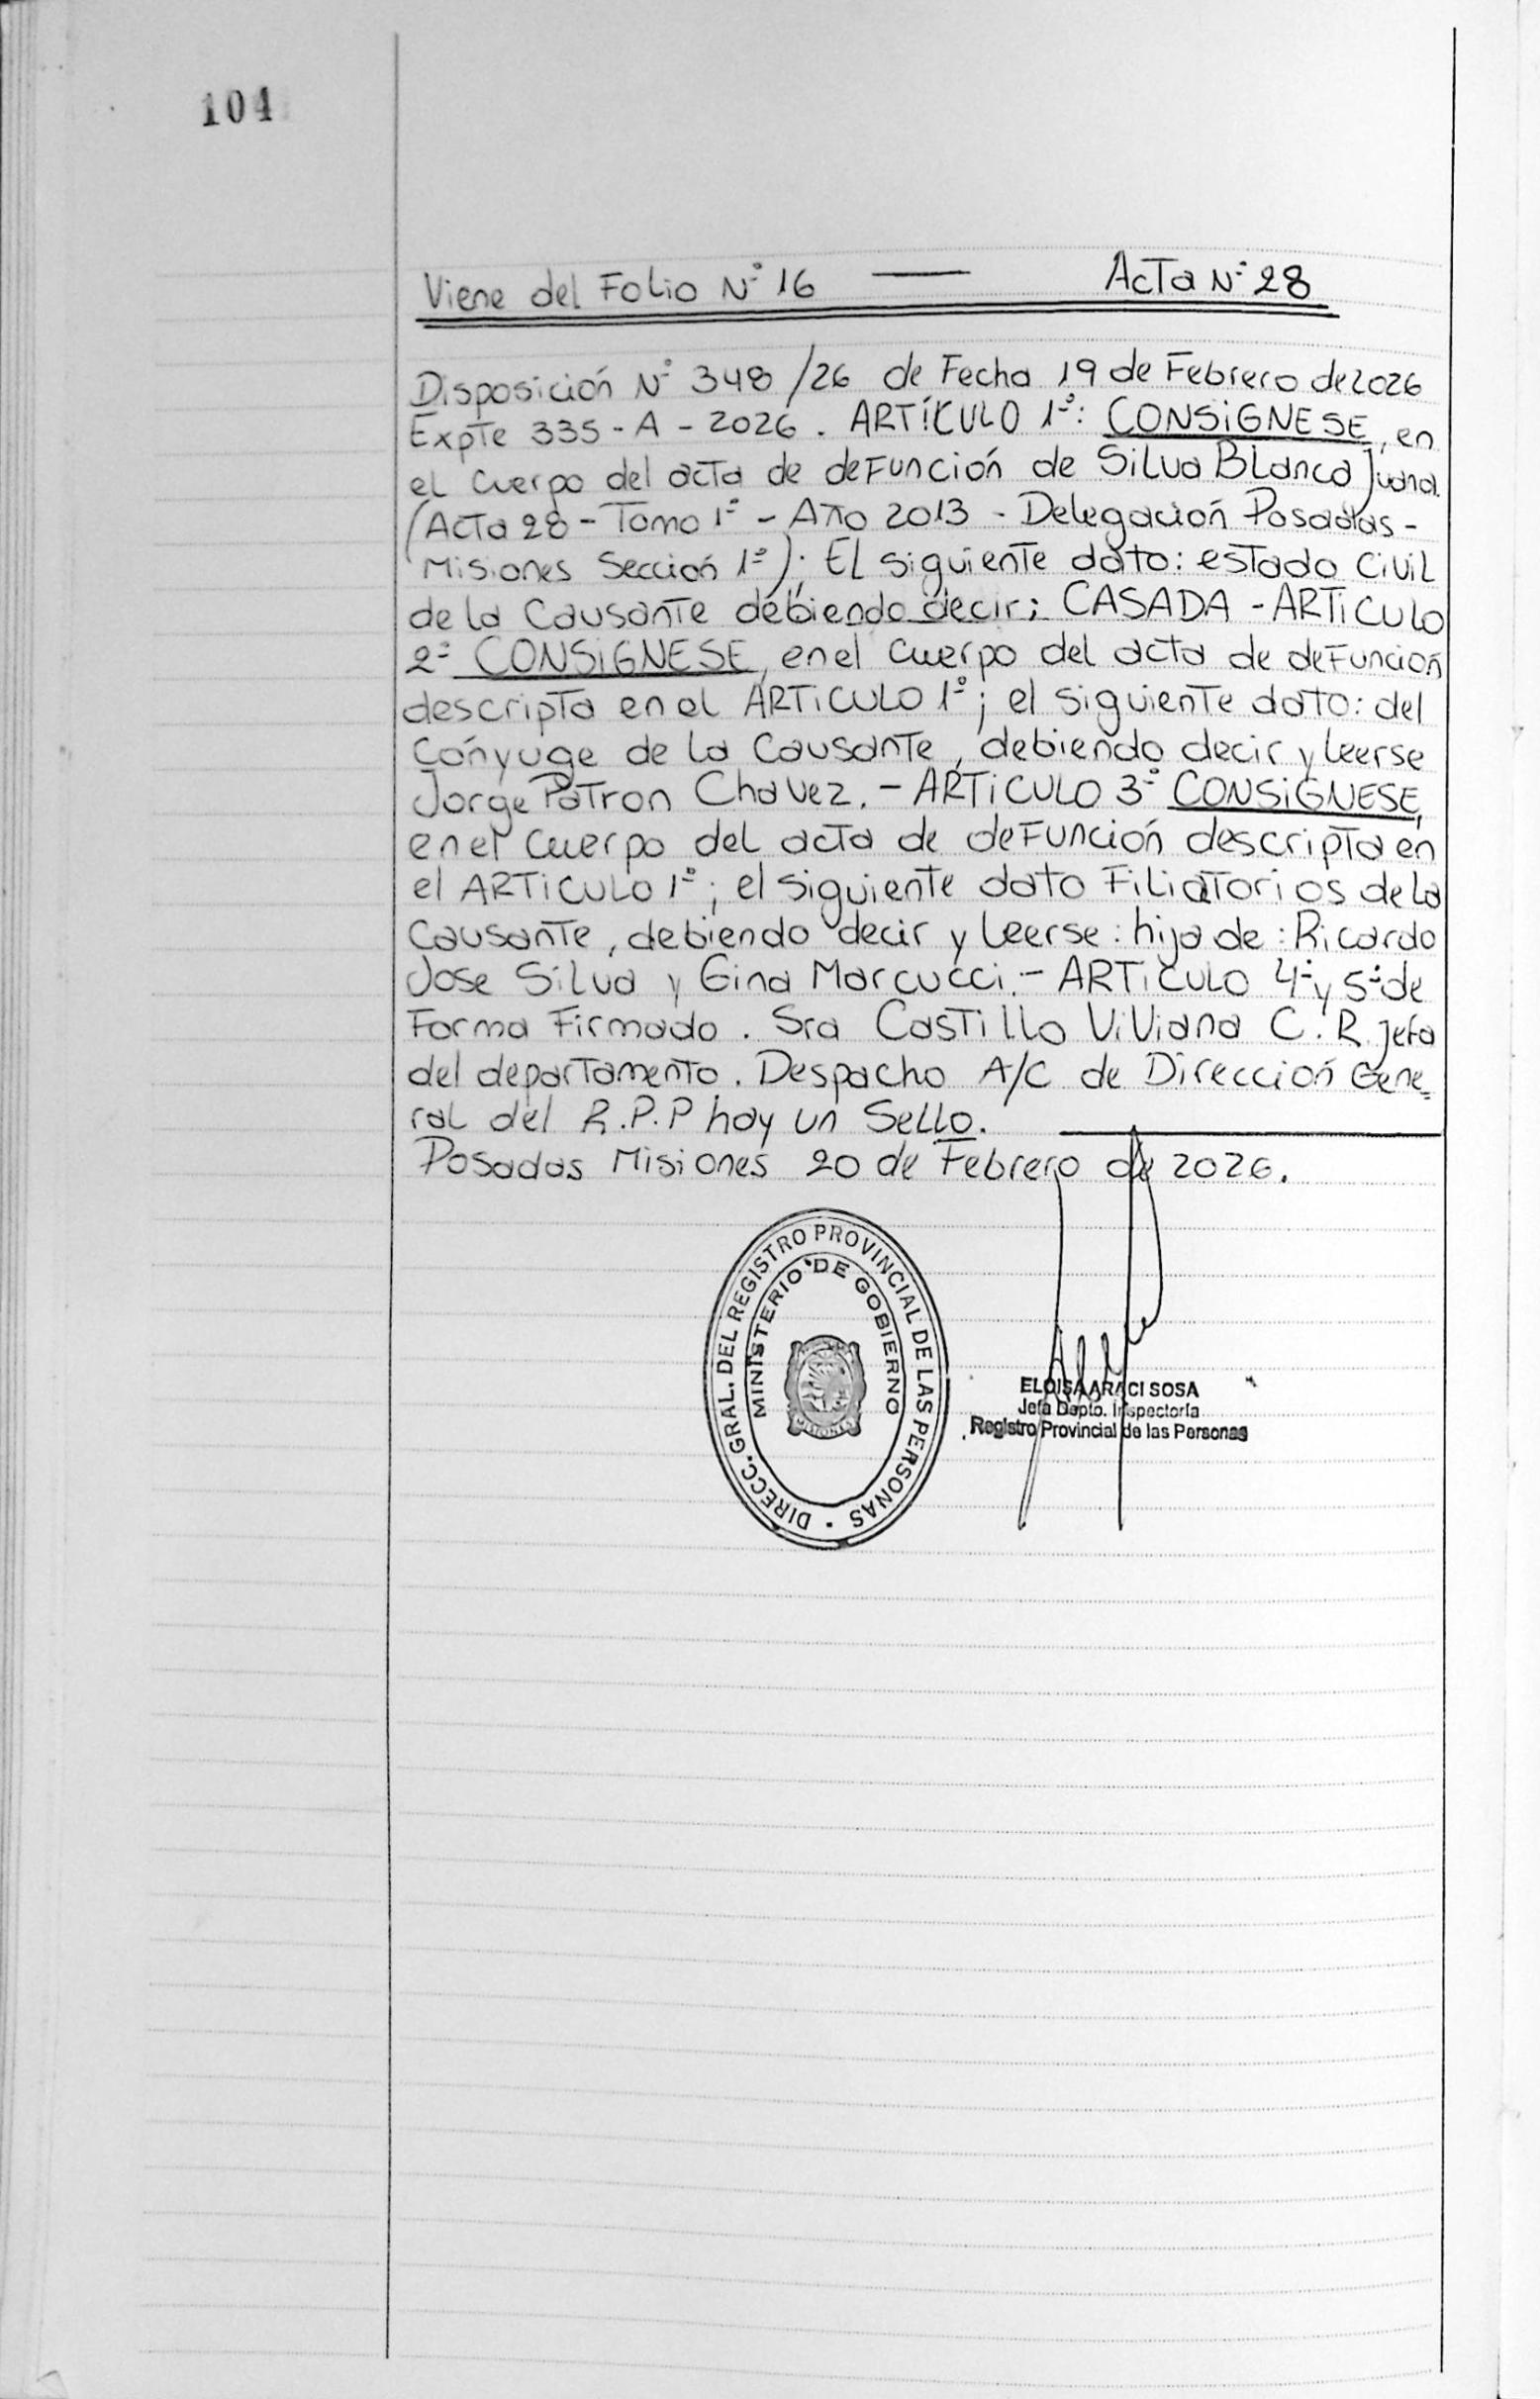 104
Viene del Folio N° 16 — Acta N° 28
Disposición N° 348/26 de Fecha 19 de Febrero de 2026
Expte 335 - A - 2026. ARTÍCULO 1°: CONSIGNESE, en
el cuerpo del acta de defunción de Silva Blanca Juana.
(Acta 28 - Tomo 1° - Año 2013 - Delegación Posadas -
Misiones Sección 1°); El siguiente dato: estado Civil
de la Causante debiendo decir; CASADA - ARTICULO
2° CONSIGNESE, en el cuerpo del acta de defunción
descripta en el ARTICULO 1°; el siguiente dato: del
Cónyuge de la Causante, debiendo decir y leerse
Jorge Patron Chavez. - ARTICULO 3° CONSIGNESE,
en el cuerpo del acta de defunción descripta en
el ARTICULO 1°; el siguiente dato Filiatorios de la
Causante, debiendo decir y leerse: hija de: Ricardo
Jose Silva y Gina Marcucci. - ARTICULO 4° y 5° de
Forma Firmado. Sra Castillo Viviana C. R. Jefa
del departamento. Despacho A/C de Dirección Gene=
ral del R.P.P hay un Sello.
Posadas Misiones 20 de Febrero de 2026.
DIRECC. GRAL. DEL REGISTRO PROVINCIAL DE LAS PERSONAS
MINISTERIO DE GOBIERNO
MISIONES
ELOISA ARACI SOSA
Jefa Depto. Inspectoría
Registro Provincial de las Personas